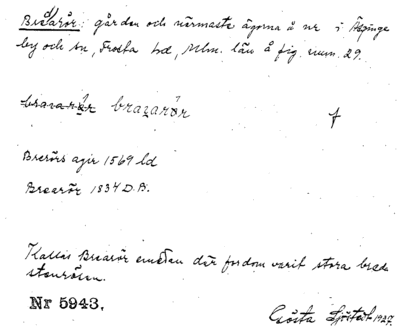 Brearör: gården och närmaste ägorna å nr i Äspinge
by och sn, Frosta hd, Mlm. län å fig. num. 29.
brazarør f
Brerörs agir 1569 ld
Brearör 1834 D.B.
Kallas Brearör emedan där fordom varit stora breda
stenrösen.
Nr 5943.
Gösta Sjöstedt 1937.